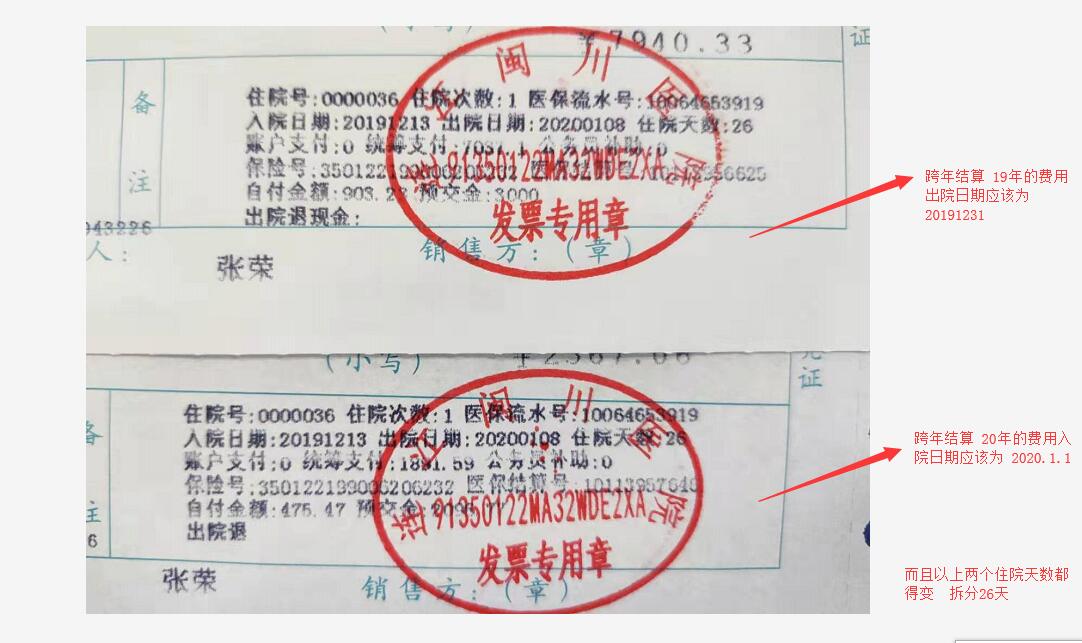 (小写)
¥7940.33
证
备
注
住院号:0000036 住院次数:1 医保流水号:10064653919
入院日期:20191213 出院日期:20200108 住院天数:26
账户支付:0 统筹支付: 公务员补助:0
保险号:
自付金额:903.23 预交金:3000
出院退现金:
943226
人:
张荣
销售方:(章)
闽川医院
91350122MA32WDE2XA
发票专用章
跨年结算 19年的费用
出院日期应该为
20191231
(小写)
证
备
注
6
住院号:0000036 住院次数:1 医保流水号:10064653919
入院日期:20191213 出院日期:20200108 住院天数:26
账户支付:0 统筹支付:1891.59 公务员补助:0
保险号:350122199006206232 医保结算号:
自付金额:475.47 预交金:
出院退
张荣
销售方:(章)
闽川医院
91350122MA32WDE2XA
发票专用章
跨年结算 20年的费用入
院日期应该为 2020.1.1
而且以上两个住院天数都
得变 拆分26天